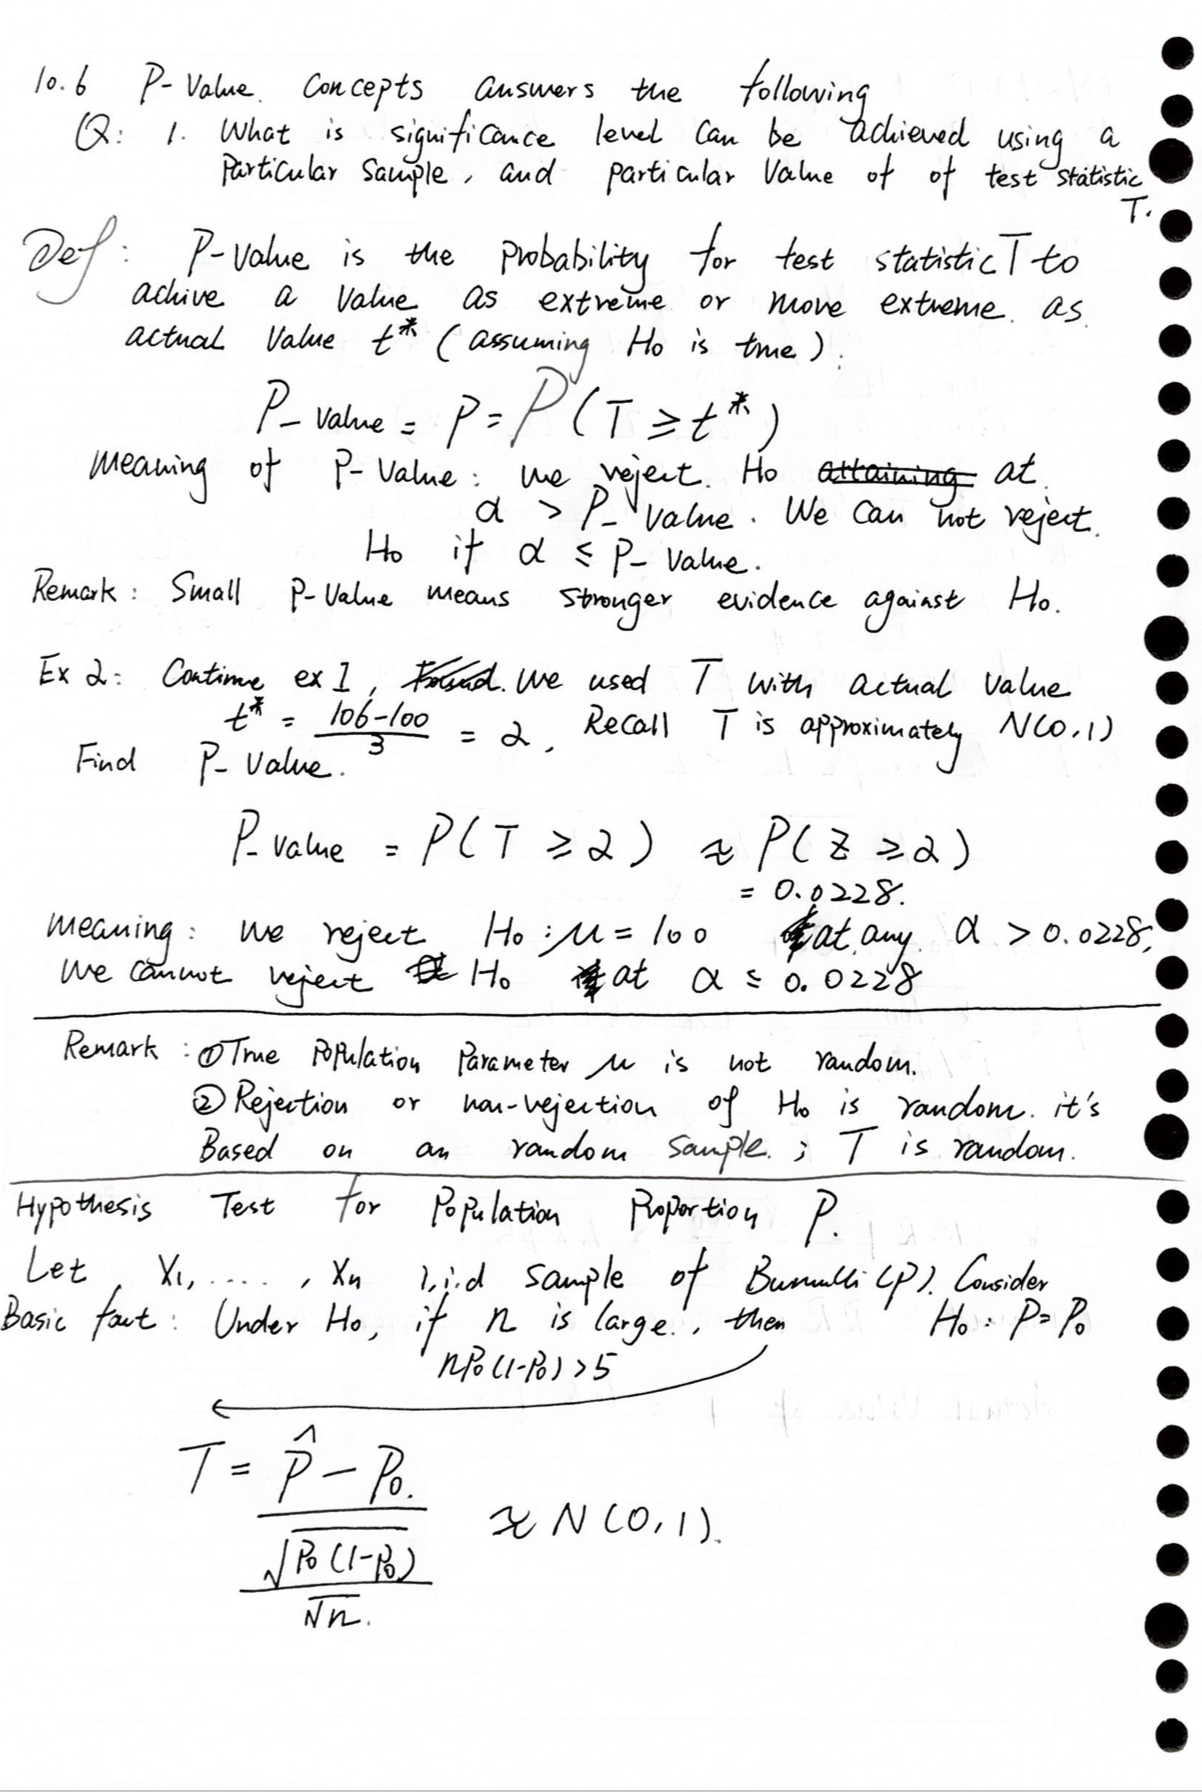 10.6 P-Value. Concepts answers the following
Q: 1. What is significance level can be achieved using a
Particular Sample, and particular Value of of test statistic
T.
Def: P-Value is the probability for test statistic T to
achive a Value as extreme or more extreme. as
actual Value t* (assuming Ho is true).
P-Value = P = P(T ≥ t*)
Meaning of P-Value: we reject. Ho attaining at
α > P-Value. We can not reject.
Ho if α ≤ P-Value.
Remark: Small P-Value means Stronger evidence against Ho.
Ex 2: Continue ex 1, Found. we used T with actual Value
t* = (106-100)/3 = 2, Recall T is approximately N(0,1)
Find P-Value.
P-Value = P(T ≥ 2) ≈ P(Z ≥ 2)
= 0.0228.
Meaning: we reject Ho: μ = 100 at any α > 0.0228,
we cannot reject Ho at α ≤ 0.0228
Remark: ① True Population Parameter μ is not random.
② Rejection or non-rejection of Ho is random. it's
Based on an random sample.; T is random.
Hypothesis Test for Population Proportion P.
Let X1, ...., Xn i,i,d sample of Bernulli (p). Consider
Basic fact: Under Ho, if n is large., then Ho: P=Po
nPo(1-Po)>5
T = p̂ - Po.
√Po(1-Po) ≈ N(0,1).
√n.